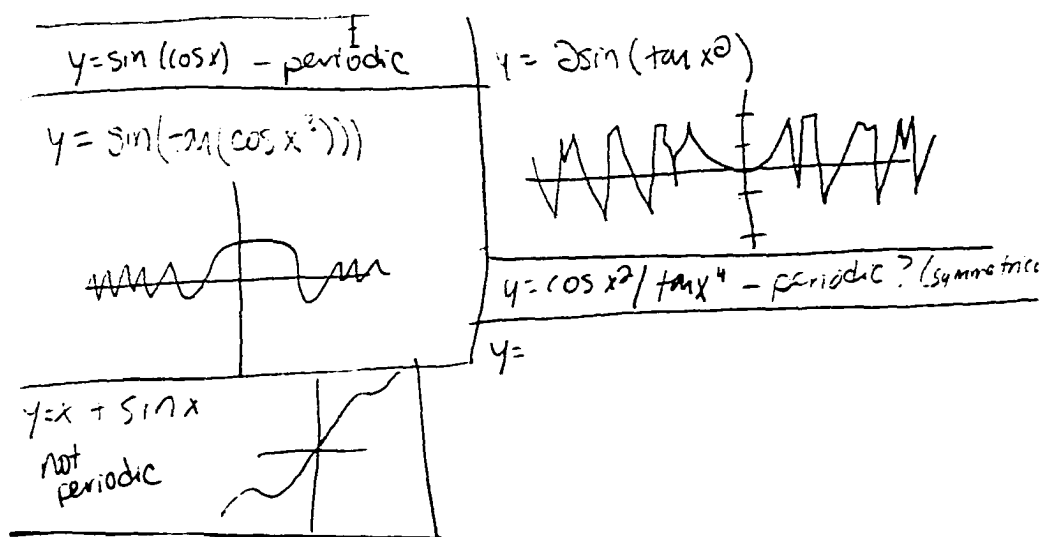 y=sin(cosx) - periodic
y = sin(sin(cos x³)))
y=x + sinx
not
periodic
y = 2sin(tan x²)
y=cos x²/tanx⁴ - periodic? (symmetric
y=